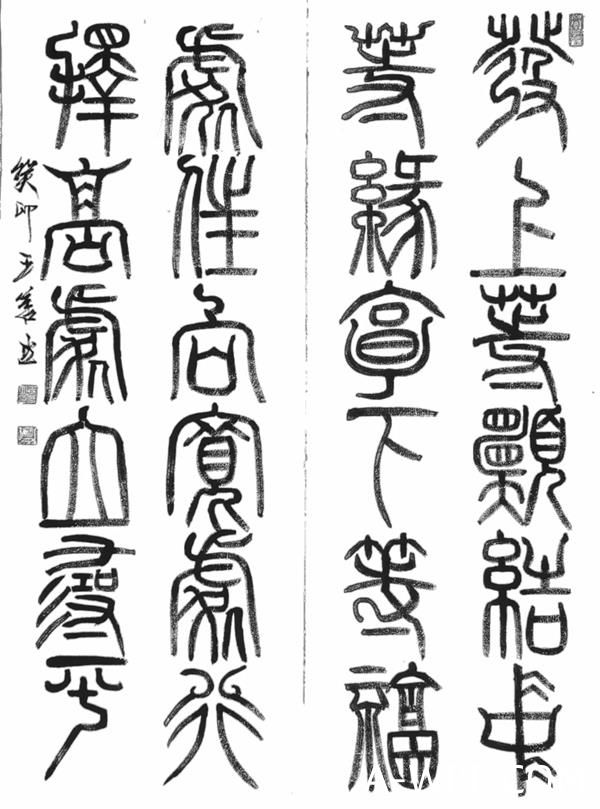 發上等願結中
等緣享下等福
擇高處立尋平
處住向寬處行
癸卯 王善